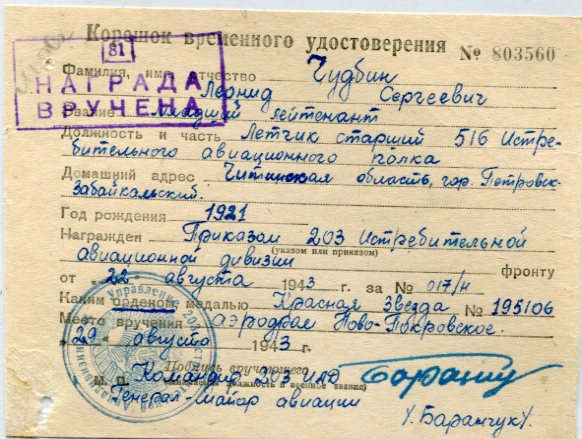 Корешок временного удостоверения № 803560
81
НАГРАДА
ВРУЧЕНА
Фамилия, имя, отчество Чудбин
Леонид Сергеевич
Звание Младший лейтенант
Должность и часть Летчик старший 516 Истре-
бительного авиационного полка
Домашний адрес Читинская область, гор. Петровск-
Забайкальский.
Год рождения 1921
Награжден Приказом 203 Истребительной
(указом или приказом)
авиационной дивизии фронту
от „22" августа 1943 г. за № 017/н
Каким орденом, медалью Красная Звезда № 195106
Место вручения аэродром Ново-Покровское.
„29" августа 1943 г.
Подпись вручающего
М. П. Командир 203 ИАД
Генерал-майор авиации
/Баранчук/.